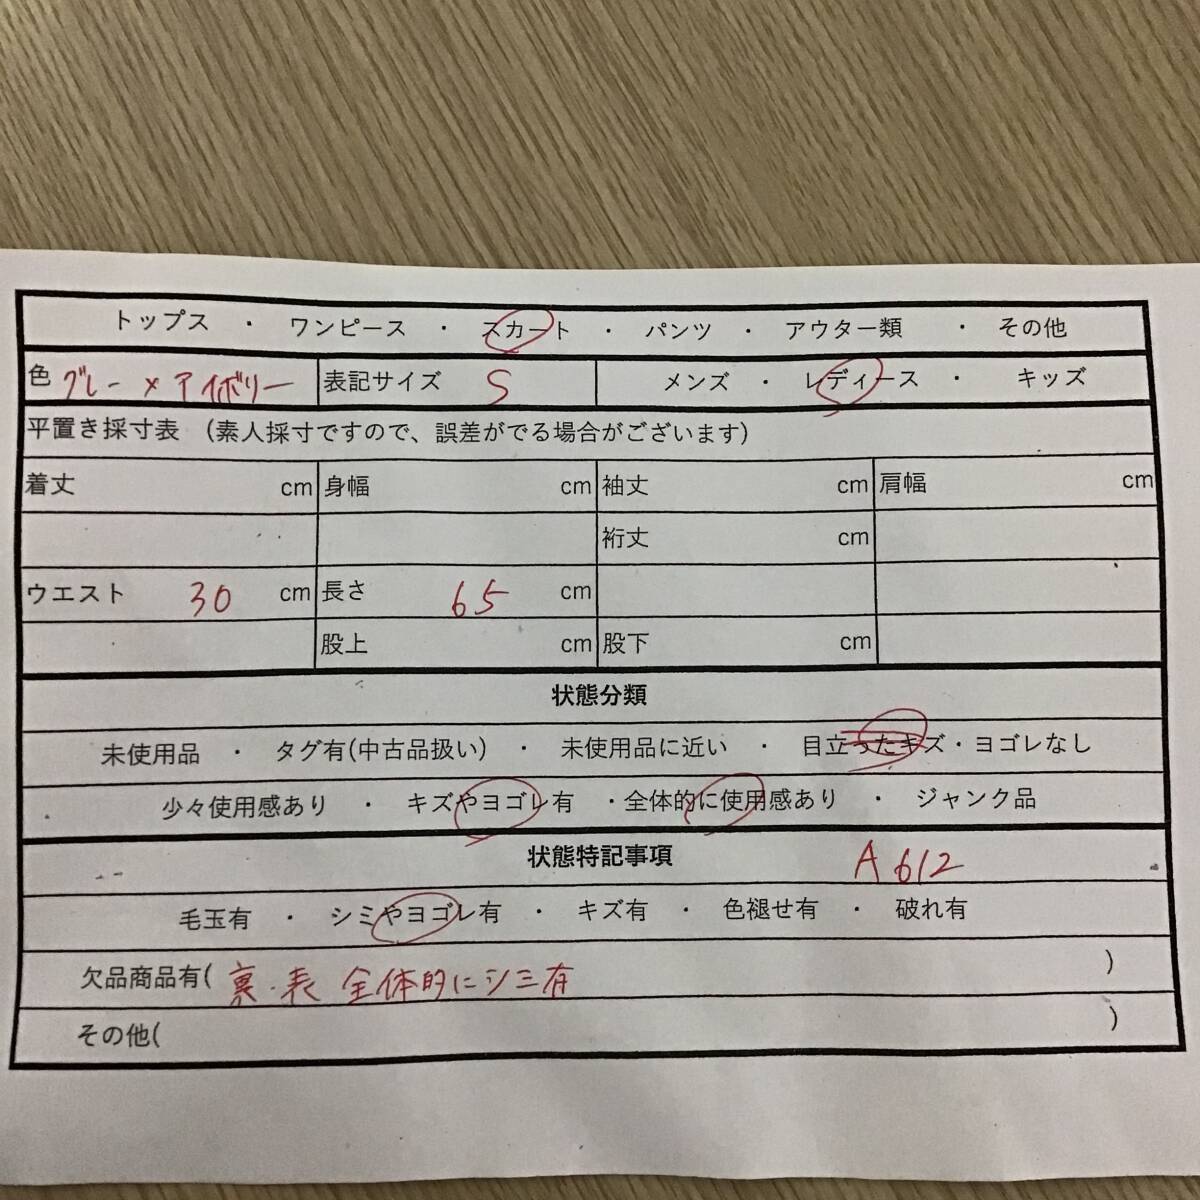 トップス ・ ワンピース ・ スカート ・ パンツ ・ アウター類 ・ その他
色 グレー×アイボリー 表記サイズ S メンズ ・ レディース ・ キッズ
平置き採寸表 (素人採寸ですので、誤差がでる場合がございます)
着丈 cm 身幅 cm 袖丈 cm 肩幅 cm
裄丈 cm
ウエスト 30 cm 長さ 65 cm
股上 cm 股下 cm
状態分類
未使用品 ・ タグ有(中古品扱い) ・ 未使用品に近い ・ 目立ったキズ・ヨゴレなし
少々使用感あり ・ キズやヨゴレ有 ・全体的に使用感あり ・ ジャンク品
状態特記事項 A612
毛玉有 ・ シミやヨゴレ有 ・ キズ有 ・ 色褪せ有 ・ 破れ有
欠品商品有( 裏・表 全体的にシミ有 )
その他( )